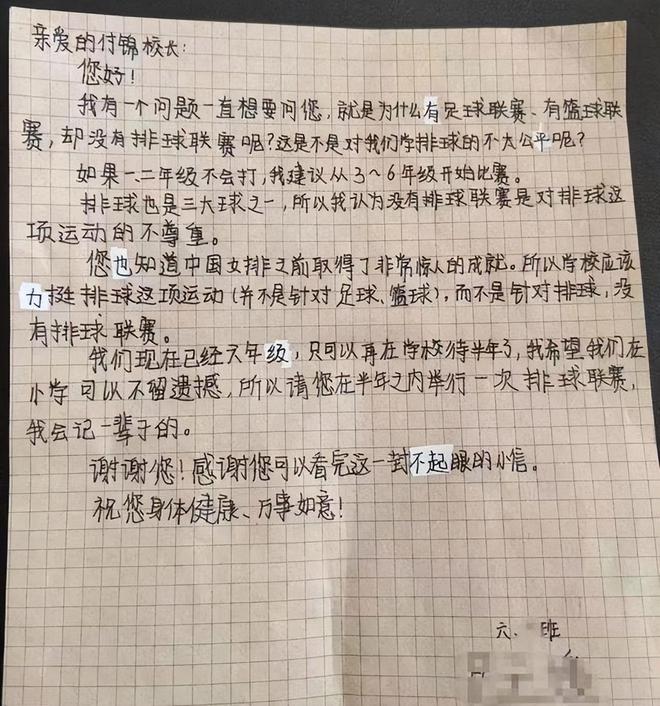 亲爱的付锦校长:
您好!
我有一个问题一直想要问您,就是为什么有足球联赛、有篮球联
赛,却没有排球联赛呢?这是不是对我们学排球的不太公平呢?
如果一、二年级不会打,我建议从3~6年级开始比赛。
排球也是三大球之一,所以我认为没有排球联赛是对排球这
项运动的不尊重。
您也知道中国女排之前取得了非常惊人的成就。所以学校应该
力挺排球这项运动(并不是针对足球、篮球),而不是针对排球,没
有排球联赛。
我们现在已经六年级,只可以再在学校待半年了,我希望我们在
小学可以不留遗憾,所以请您在半年之内举行一次排球联赛,
我会记一辈子的。
谢谢您!感谢您可以看完这一封不起眼的小信。
祝您身体健康、万事如意!
六、班